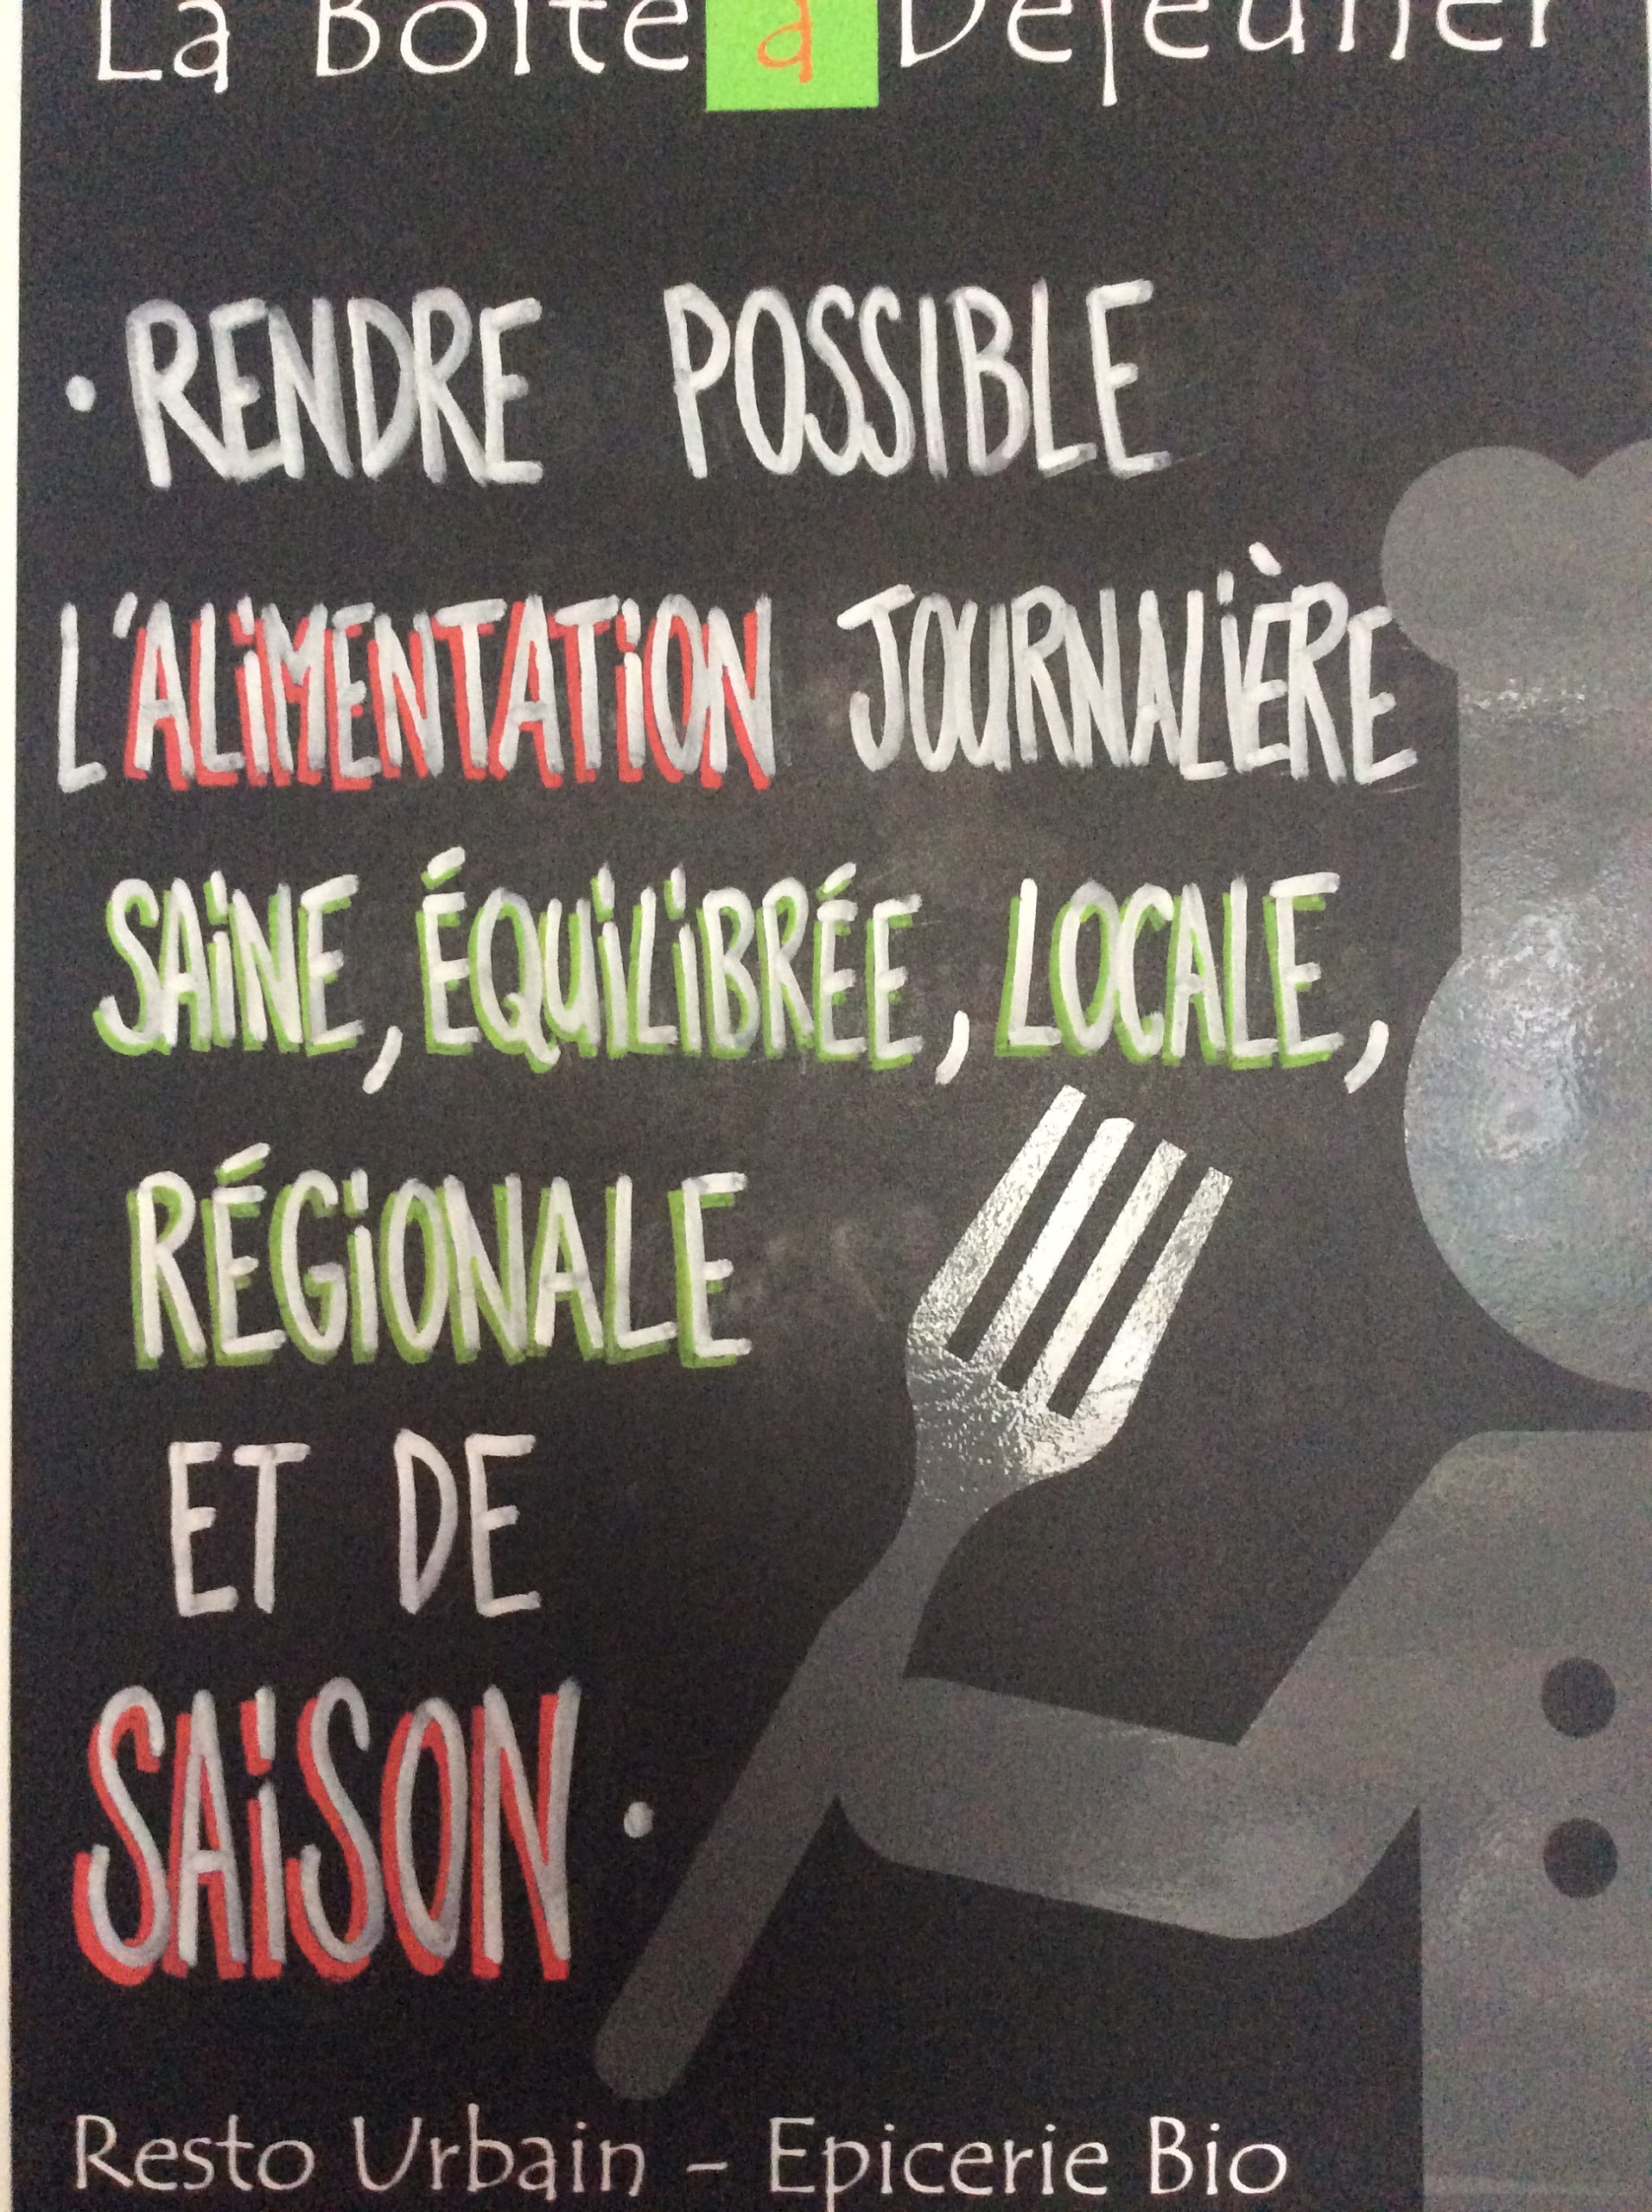 La Boîte à Déjeuner
• RENDRE POSSIBLE
L'ALiMENTATiON JOURNALIÈRE
SAiNE, ÉQUiLiBRÉE, LOCALE,
RÉGiONALE
ET DE
SAiSON •
Resto Urbain - Epicerie Bio